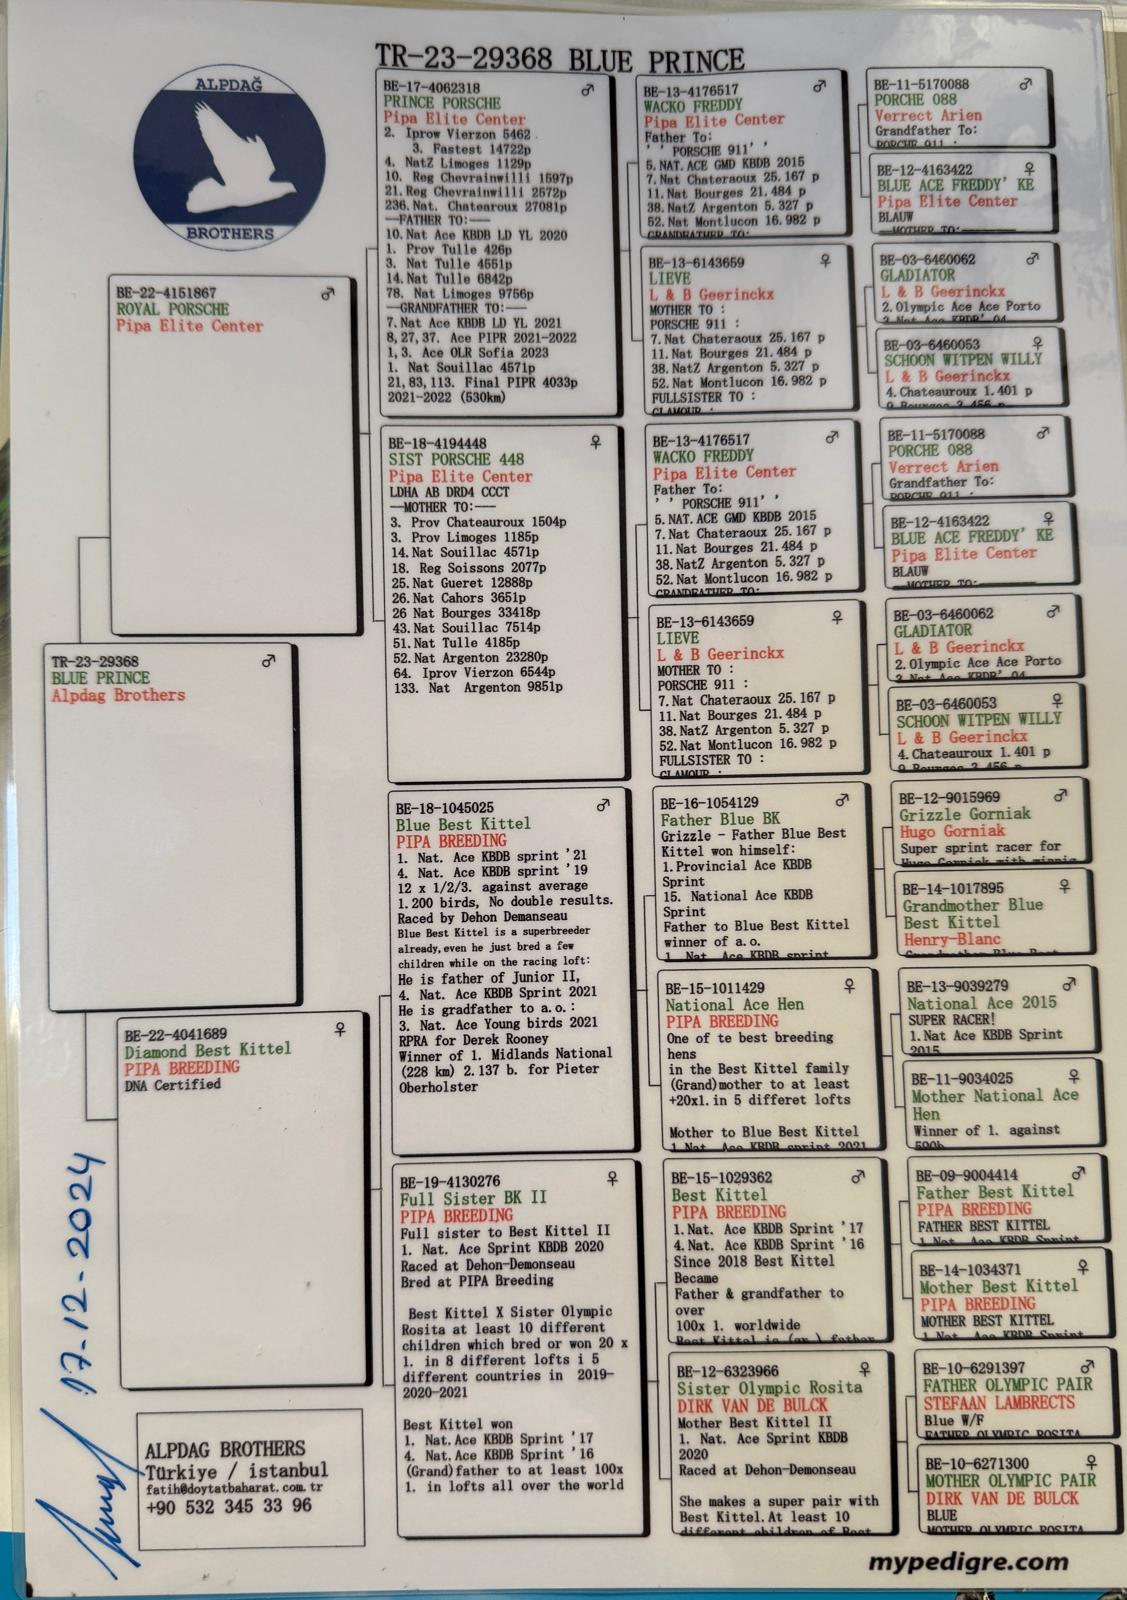 TR-23-29368 BLUE PRINCE
ALPDAĞ
BROTHERS
TR-23-29368 ♂
BLUE PRINCE
Alpdag Brothers
BE-22-4151867 ♂
ROYAL PORSCHE
Pipa Elite Center
BE-22-4041689 ♀
Diamond Best Kittel
PIPA BREEDING
DNA Certified
BE-17-4062318 ♂
PRINCE PORSCHE
Pipa Elite Center
2. Iprow Vierzon 5462
3. Fastest 14722p
4. NatZ Limoges 1129p
10. Reg Chevrainwilli 1597p
21. Reg Chevrainwilli 2572p
236. Nat. Chatearoux 27081p
—FATHER TO:—
10. Nat Ace KBDB LD YL 2020
1. Prov Tulle 426p
3. Nat Tulle 4551p
14. Nat Tulle 6842p
78. Nat Limoges 9756p
—GRANDFATHER TO:—
7. Nat Ace KBDB LD YL 2021
8, 27, 37. Ace PIPR 2021-2022
1, 3. Ace OLR Sofia 2023
1. Nat Souillac 4571p
21, 83, 113. Final PIPR 4033p
2021-2022 (530km)
BE-18-4194448 ♀
SIST PORSCHE 448
Pipa Elite Center
LDHA AB DRD4 CCCT
—MOTHER TO:—
3. Prov Chateauroux 1504p
3. Prov Limoges 1185p
14. Nat Souillac 4571p
18. Reg Soissons 2077p
25. Nat Gueret 12888p
26. Nat Cahors 3651p
26 Nat Bourges 33418p
43. Nat Souillac 7514p
51. Nat Tulle 4185p
52. Nat Argenton 23280p
64. Iprov Vierzon 6544p
133. Nat Argenton 9851p
BE-18-1045025 ♂
Blue Best Kittel
PIPA BREEDING
1. Nat. Ace KBDB sprint '21
4. Nat. Ace KBDB sprint '19
12 x 1/2/3. against average
1.200 birds, No double results.
Raced by Dehon Demanseau
Blue Best Kittel is a superbreeder
already, even he just bred a few
children while on the racing loft:
He is father of Junior II,
4. Nat. Ace KBDB Sprint 2021
He is gradfather to a.o.:
3. Nat. Ace Young birds 2021
RPRA for Derek Rooney
Winner of 1. Midlands National
(228 km) 2.137 b. for Pieter
Oberholster
BE-19-4130276 ♀
Full Sister BK II
PIPA BREEDING
Full sister to Best Kittel II
1. Nat. Ace Sprint KBDB 2020
Raced at Dehon-Demonseau
Bred at PIPA Breeding
Best Kittel X Sister Olympic
Rosita at least 10 different
children which bred or won 20 x
1. in 8 different lofts i 5
different countries in 2019-
2020-2021
Best Kittel won
1. Nat. Ace KBDB Sprint '17
4. Nat. Ace KBDB Sprint '16
(Grand)father to at least 100x
1. in lofts all over the world
BE-13-4176517 ♂
WACKO FREDDY
Pipa Elite Center
Father To:
' ' PORSCHE 911' '
5. NAT. ACE GMD KBDB 2015
7. Nat Chateraoux 25.167 p
11. Nat Bourges 21.484 p
38. NatZ Argenton 5.327 p
52. Nat Montlucon 16.982 p
GRANDFATHER TO:
BE-13-6143659 ♀
LIEVE
L & B Geerinckx
MOTHER TO :
PORSCHE 911 :
7. Nat Chateraoux 25.167 p
11. Nat Bourges 21.484 p
38. NatZ Argenton 5.327 p
52. Nat Montlucon 16.982 p
FULLSISTER TO :
GLAMOUR :
BE-13-4176517 ♂
WACKO FREDDY
Pipa Elite Center
Father To:
' ' PORSCHE 911' '
5. NAT. ACE GMD KBDB 2015
7. Nat Chateraoux 25.167 p
11. Nat Bourges 21.484 p
38. NatZ Argenton 5.327 p
52. Nat Montlucon 16.982 p
GRANDFATHER TO:
BE-13-6143659 ♀
LIEVE
L & B Geerinckx
MOTHER TO :
PORSCHE 911 :
7. Nat Chateraoux 25.167 p
11. Nat Bourges 21.484 p
38. NatZ Argenton 5.327 p
52. Nat Montlucon 16.982 p
FULLSISTER TO :
GLAMOUR :
BE-16-1054129 ♂
Father Blue BK
Grizzle - Father Blue Best
Kittel won himself:
1. Provincial Ace KBDB
Sprint
15. National Ace KBDB
Sprint
Father to Blue Best Kittel
winner of a.o.
1. Nat. Ace KBDB sprint
BE-15-1011429 ♀
National Ace Hen
PIPA BREEDING
One of te best breeding
hens
in the Best Kittel family
(Grand)mother to at least
+20x1. in 5 differet lofts
Mother to Blue Best Kittel
1. Nat. Ace KBDB sprint 2021
BE-15-1029362 ♂
Best Kittel
PIPA BREEDING
1. Nat. Ace KBDB Sprint '17
4. Nat. Ace KBDB Sprint '16
Since 2018 Best Kittel
Became
Father & grandfather to
over
100x 1. worldwide
Best Kittel is (gr.) father
BE-12-6323966 ♀
Sister Olympic Rosita
DIRK VAN DE BULCK
Mother Best Kittel II
1. Nat. Ace Sprint KBDB
2020
Raced at Dehon-Demonseau
She makes a super pair with
Best Kittel. At least 10
different children of Best
BE-11-5170088 ♂
PORCHE 088
Verrect Arien
Grandfather To:
PORCHE 911 :
BE-12-4163422 ♀
BLUE ACE FREDDY' KE
Pipa Elite Center
BLAUW
—MOTHER TO:—
BE-03-6460062 ♂
GLADIATOR
L & B Geerinckx
2. Olympic Ace Ace Porto
3. Nat Ace KBDB' 04
BE-03-6460053 ♀
SCHOON WITPEN WILLY
L & B Geerinckx
4. Chateauroux 1.401 p
9. Bourges 3.456 p
BE-11-5170088 ♂
PORCHE 088
Verrect Arien
Grandfather To:
PORCHE 911 :
BE-12-4163422 ♀
BLUE ACE FREDDY' KE
Pipa Elite Center
BLAUW
—MOTHER TO:—
BE-03-6460062 ♂
GLADIATOR
L & B Geerinckx
2. Olympic Ace Ace Porto
3. Nat Ace KBDB' 04
BE-03-6460053 ♀
SCHOON WITPEN WILLY
L & B Geerinckx
4. Chateauroux 1.401 p
9. Bourges 3.456 p
BE-12-9015969 ♂
Grizzle Gorniak
Hugo Gorniak
Super sprint racer for
Hugo Gorniak with
BE-14-1017895 ♀
Grandmother Blue
Best Kittel
Henry-Blanc
Grandmother Blue Best
BE-13-9039279 ♂
National Ace 2015
SUPER RACER!
1. Nat Ace KBDB Sprint
2015
BE-11-9034025 ♀
Mother National Ace
Hen
Winner of 1. against
500b
BE-09-9004414 ♂
Father Best Kittel
PIPA BREEDING
FATHER BEST KITTEL
1. Nat. Ace KBDB Sprint
BE-14-1034371 ♀
Mother Best Kittel
PIPA BREEDING
MOTHER BEST KITTEL
1. Nat. Ace KBDB Sprint
BE-10-6291397 ♂
FATHER OLYMPIC PAIR
STEFAAN LAMBRECTS
Blue W/F
FATHER OLYMPIC ROSITA
BE-10-6271300 ♀
MOTHER OLYMPIC PAIR
DIRK VAN DE BULCK
BLUE
MOTHER OLYMPIC ROSITA
17-12-2024
ALPDAG BROTHERS
Türkiye / istanbul
fatih@doytatbaharat.com.tr
+90 532 345 33 96
mypedigre.com